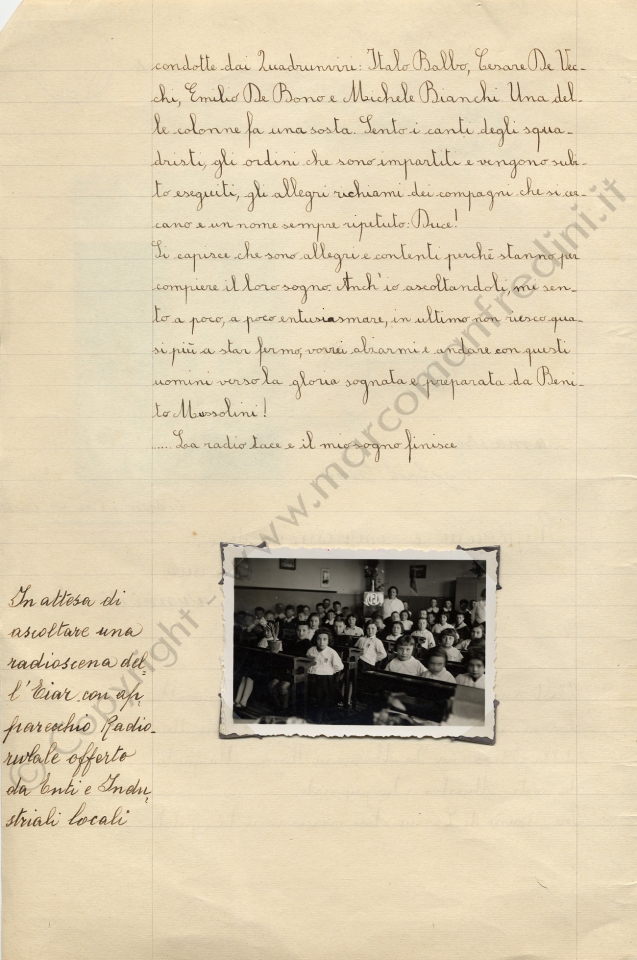 condotte dai Quadrunviri: Italo Balbo, Cesare De Vec-
chi, Emilio De Bono e Michele Bianchi. Una del-
le colonne fa una sosta. Sento i canti degli squa-
dristi, gli ordini che sono impartiti e vengono subi-
to eseguiti, gli allegri richiami dei compagni che si cer-
cano e un nome sempre ripetuto: Duce!
Si capisce che sono allegri e contenti perchè stanno per
compiere il loro sogno. Anch'io ascoltandoli, mi sen-
to a poco, a poco entusiasmare, in ultimo non riesco qua-
si più a star fermo, vorrei alzarmi e andare con questi
uomini verso la gloria sognata e preparata da Beni-
to Mussolini!
..... La radio tace e il mio sogno finisce
In attesa di
ascoltare una
radioscena del-
l'Eiar con ap-
parecchio Radio-
rurale offerto
da Enti e Indu-
striali locali
© Copyright - www.marcomanfredini.it